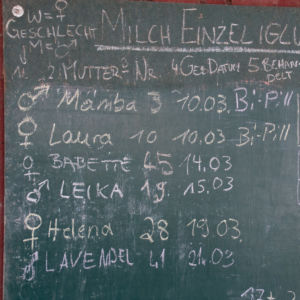 W=♀
GESCHLECHT MILCH EINZELIGLU
M=♂
1. 2. MUTTER 3 NR. 4 GEB DATUM 5 BEHAN
DELT
♂ Mamba 3 10.03. Bi-Pill
♀ Laura 10 10.03 Bi-Pill
♀ BABETTE 45 14.03
♂ LEIKA 19. 15.03
♀ Helena 28 19.03
LAVENDEL 41 21.03